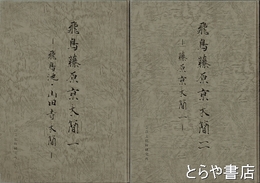 飛鳥藤原京木簡一
―飛鳥池・山田寺木簡―
飛鳥藤原京木簡二
―藤原京木簡一―
とらや書店